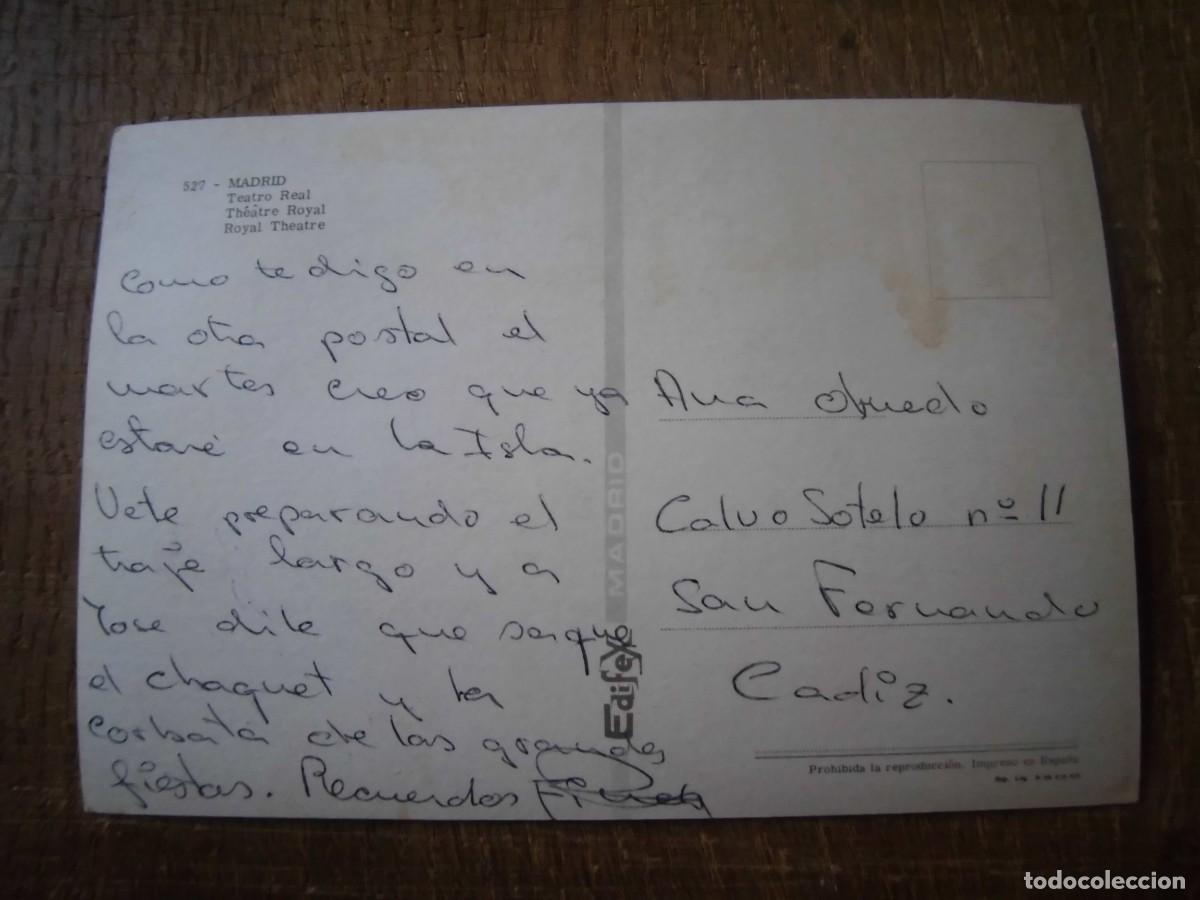 527 - MADRID
Teatro Real
Théâtre Royal
Royal Theatre
como te digo en
la otra postal el
martes creo que ya
estaré en la Isla.
Vete preparando el
traje largo y a
Jose dile que saque
el chaquet y la
corbata de las grandes
fiestas. Recuerdos
MADRID
Edifex
Ana
Calvo Sotelo nº 11
San Fernando
Cadiz.
Prohibida la reproducción. Impreso en España
todocoleccion